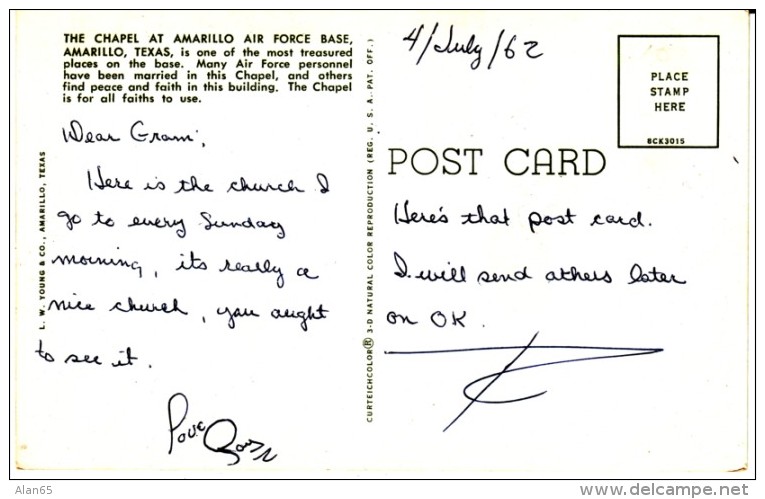 THE CHAPEL AT AMARILLO AIR FORCE BASE,
AMARILLO, TEXAS, is one of the most treasured
places on the base. Many Air Force personnel
have been married in this Chapel, and others
find peace and faith in this building. The Chapel
is for all faiths to use.
Dear Gram,
Here is the church I
go to every Sunday
morning, its really a
nice church, you aught
to see it.
L. W. YOUNG & CO., AMARILLO, TEXAS
CURTEICHCOLOR® 3-D NATURAL COLOR REPRODUCTION (REG. U. S. A. PAT. OFF.)
4/July/62
PLACE
STAMP
HERE
BCK3015
POST CARD
Here's that post card.
I will send athers later
on OK.
Alan65
delcampe.net